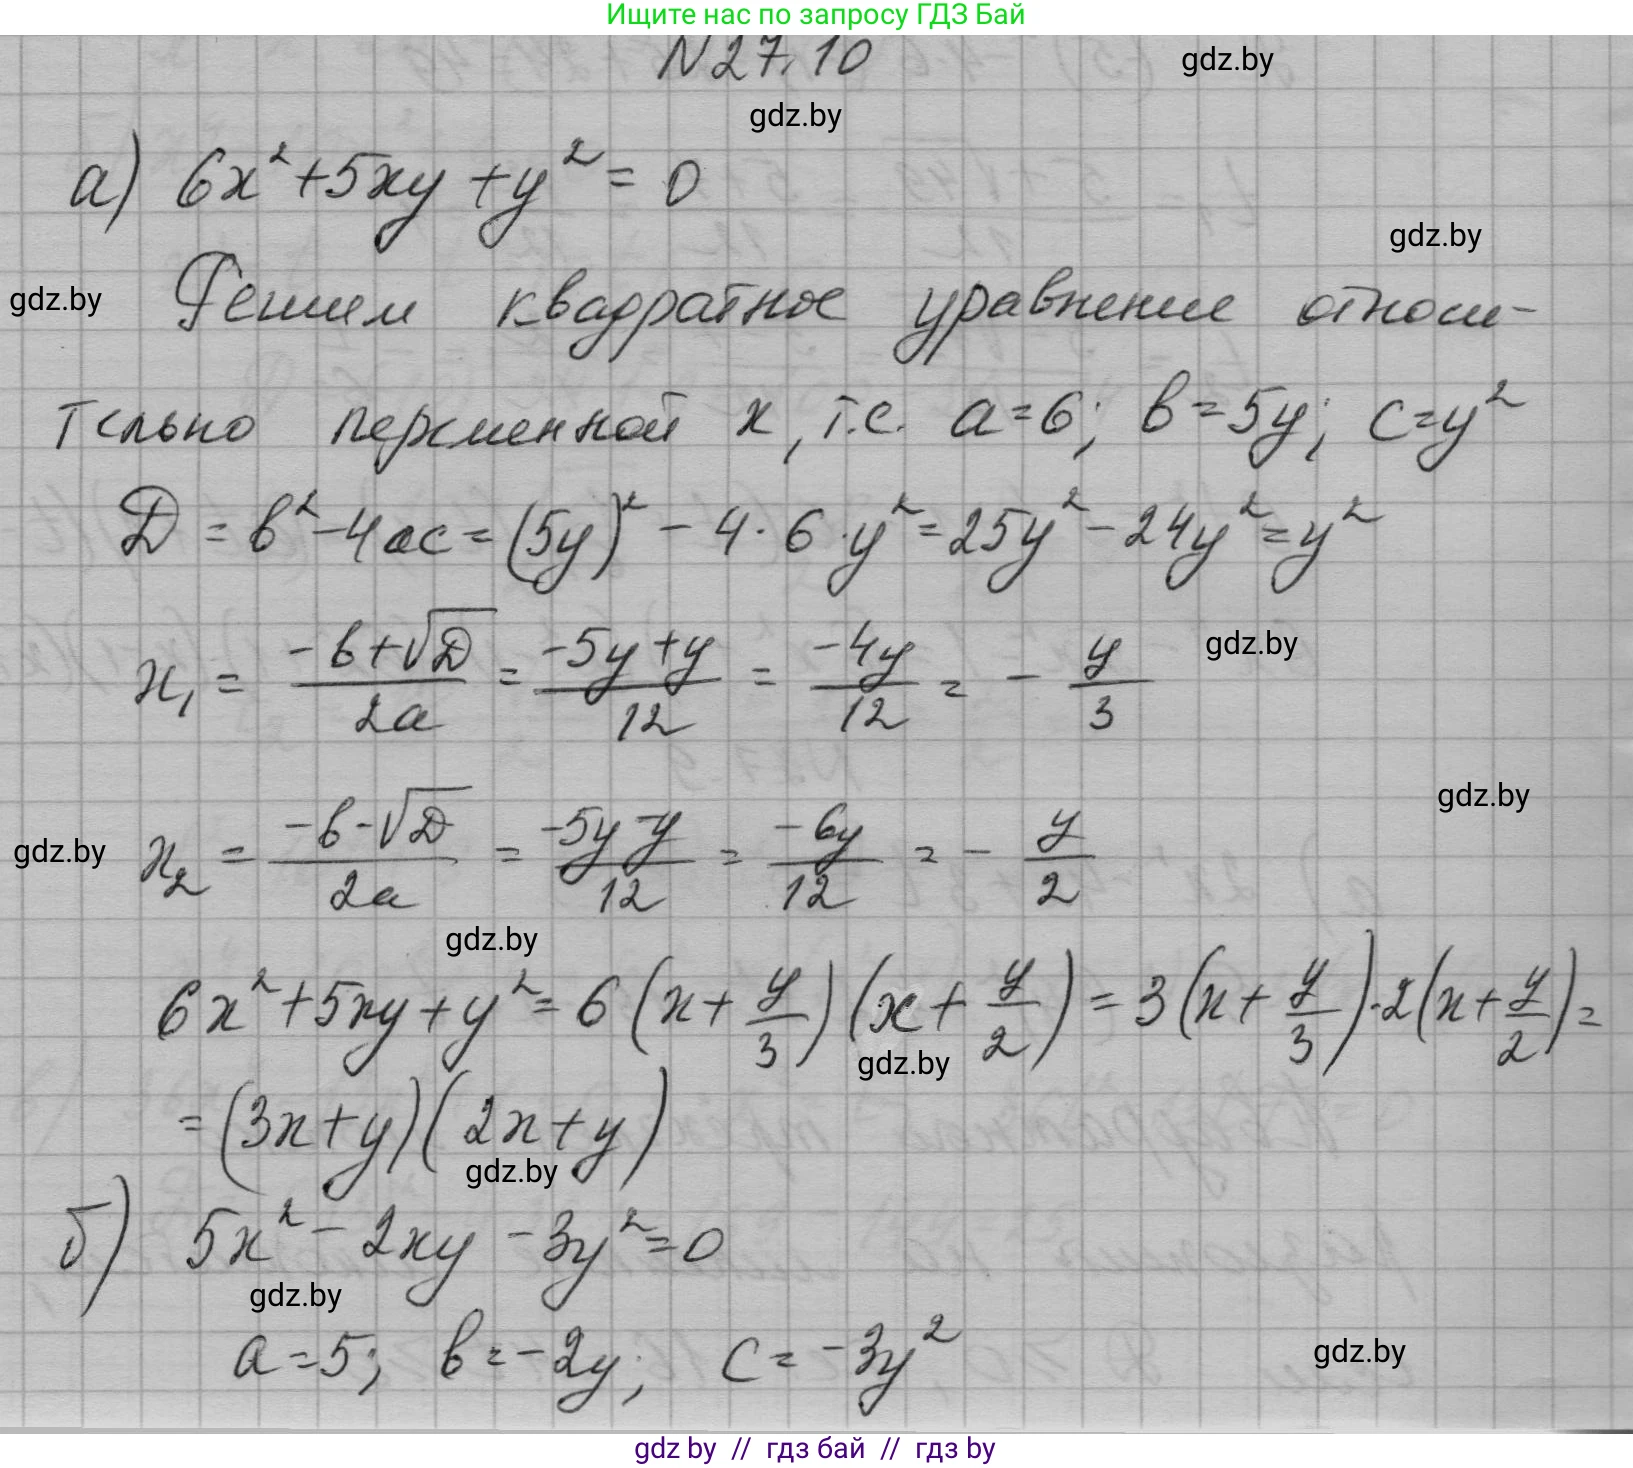 Ищите нас по запросу ГДЗ Бай
N27.10
gdz.by
gdz.by
а) 6x² + 5xy + y² = 0
gdz.by
gdz.by
Решим квадратное уравнение относи-
тельно переменной x, т.е. a = 6; b = 5y; c = y²
D = b² - 4ac = (5y)² - 4 · 6 · y² = 25y² - 24y² = y²
x₁ = (-b + √D)/(2a) = (-5y + y)/12 = (-4y)/12 = - y/3
gdz.by
gdz.by
x₂ = (-b - √D)/(2a) = (-5y - y)/12 = (-6y)/12 = - y/2
gdz.by
gdz.by
6x² + 5xy + y² = 6(x + y/3)(x + y/2) = 3(x + y/3) · 2(x + y/2) =
gdz.by
= (3x + y)(2x + y)
gdz.by
б) 5x² - 2xy - 3y² = 0
gdz.by
a = 5; b = -2y; c = -3y²
gdz.by
gdz by // гдз бай // гдз by